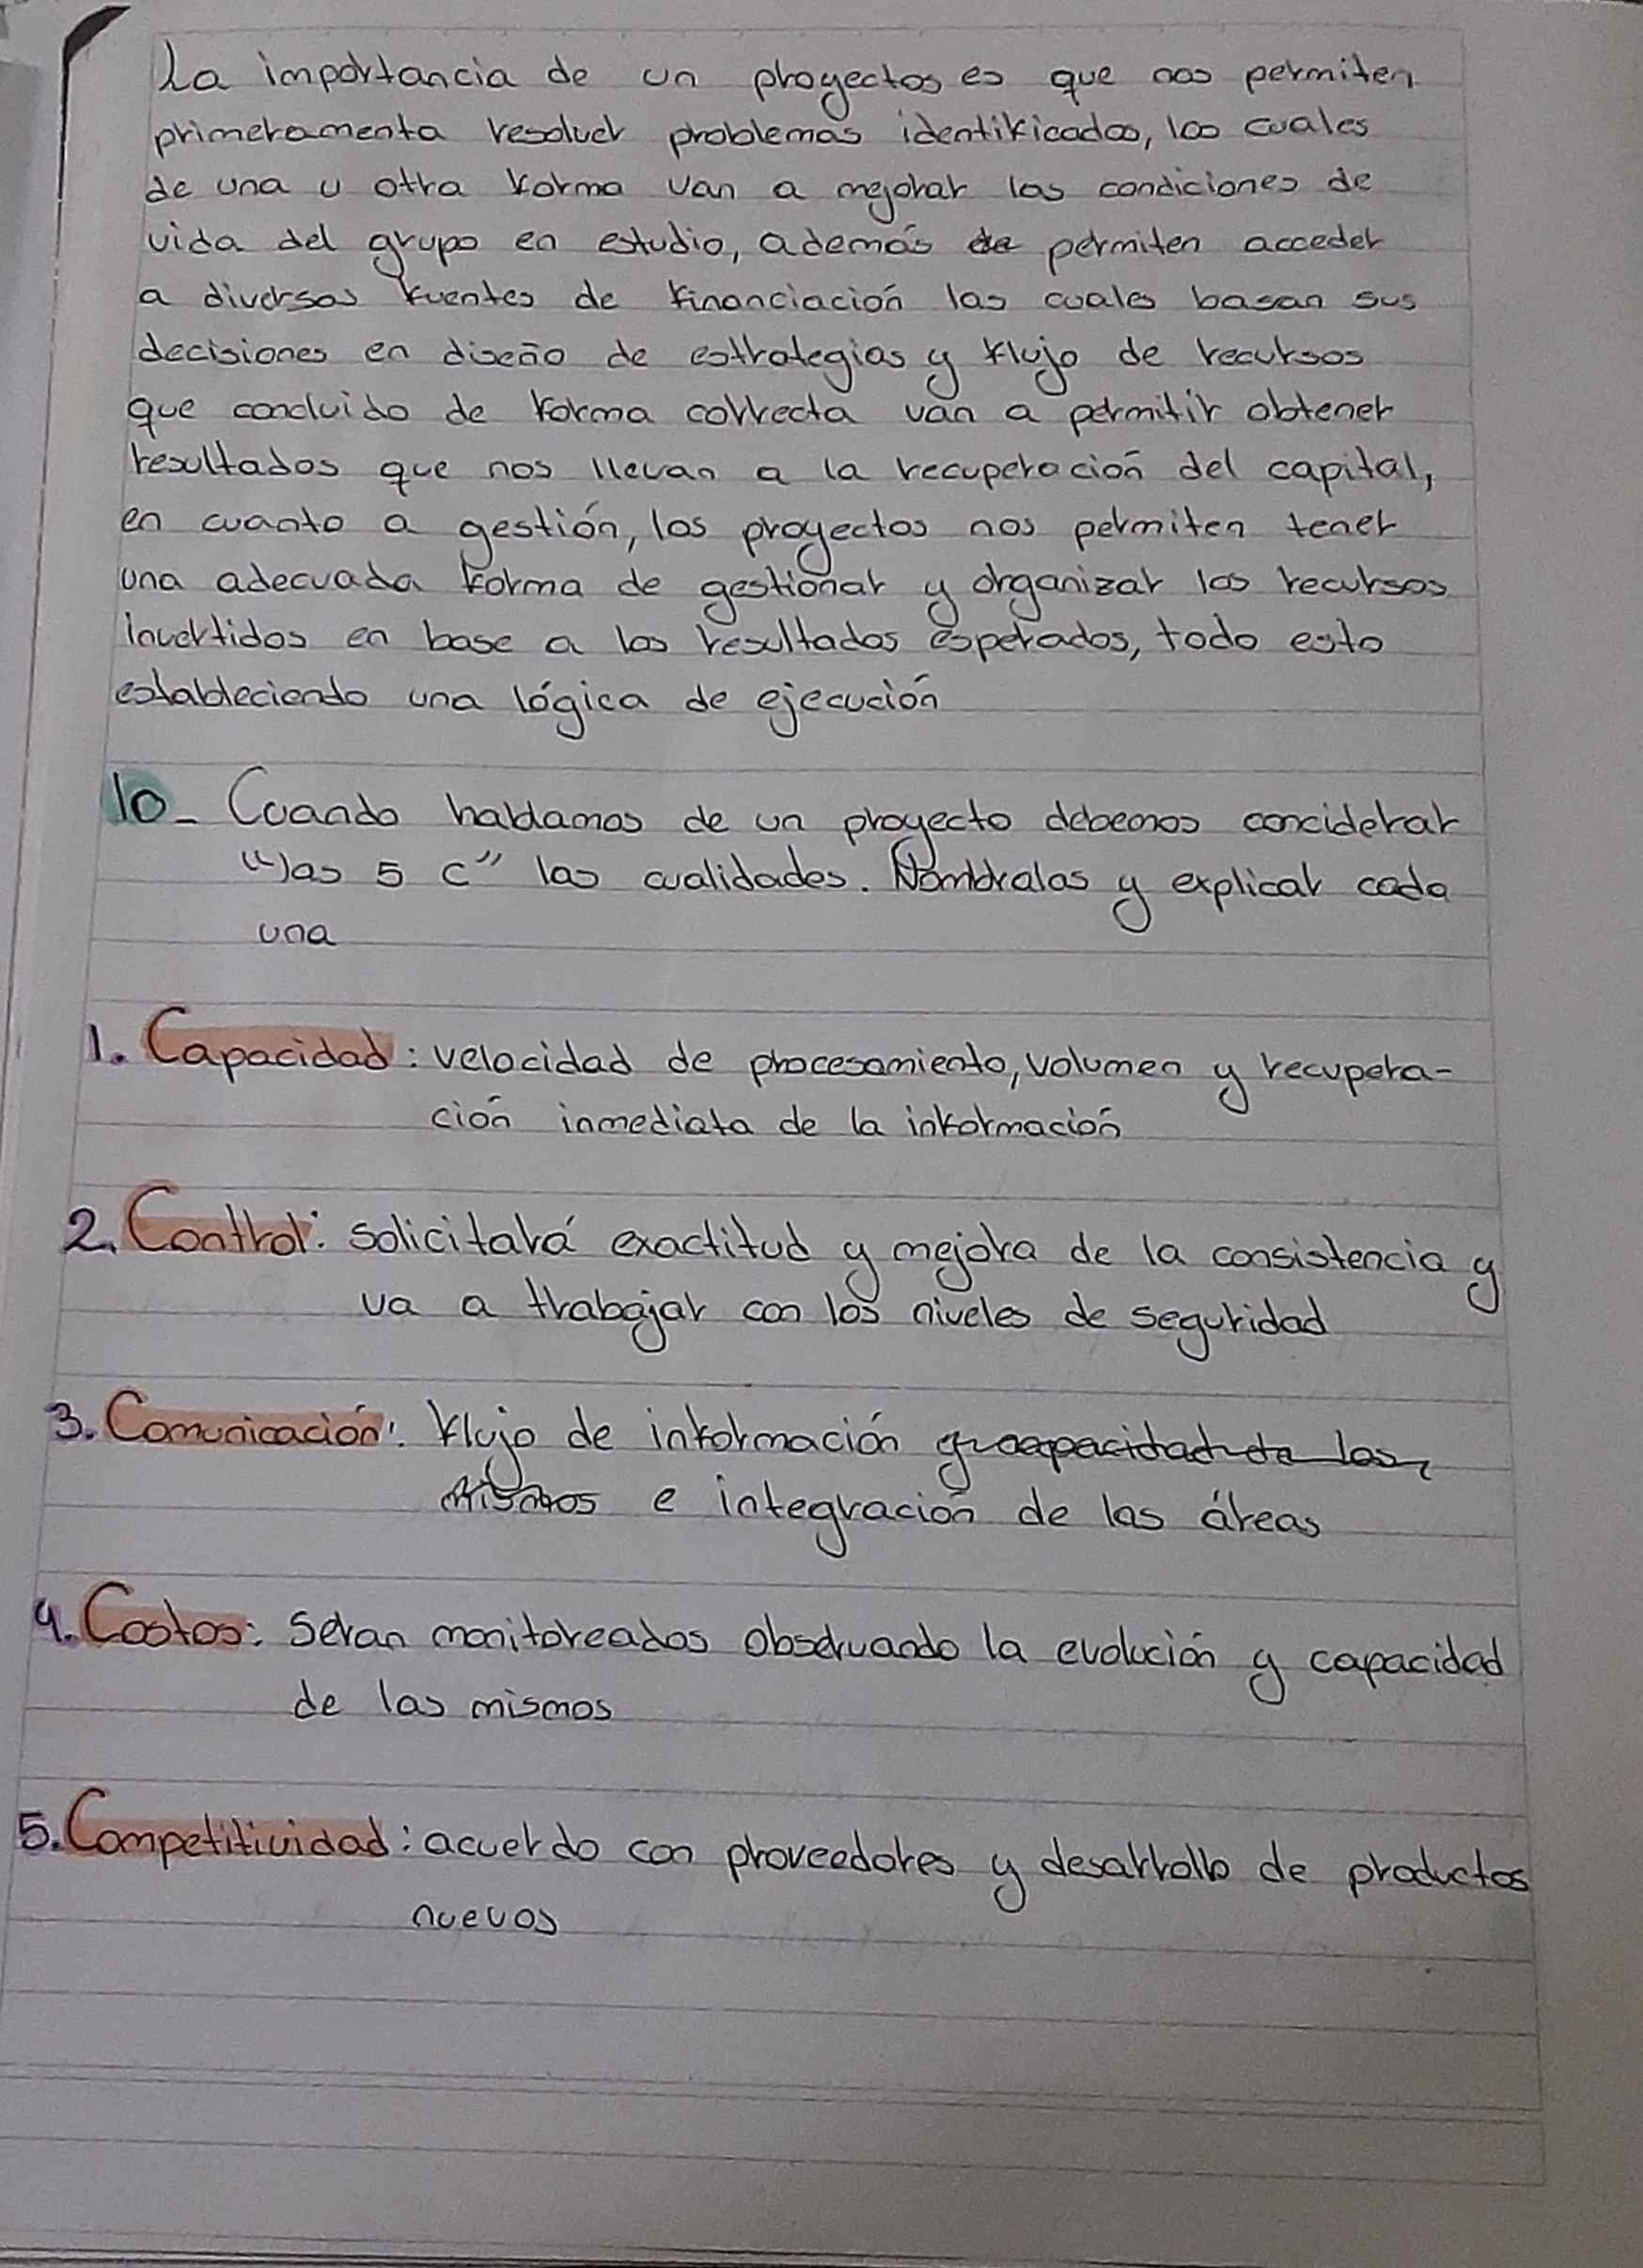 La importancia de un proyectos es que nos permiten
primeramenta resolver problemas identificados, los cuales
de una u otra forma van a mejorar las condiciones de
vida del grupo en estudio, además de permiten acceder
a diversas fuentes de financiación las cuales basan sus
decisiones en diseño de estrategias y flujo de recursos
que concluido de forma correcta van a permitir obtener
resultados que nos llevan a la recuperación del capital,
en cuanto a gestión, los proyectos nos permiten tener
una adecuada forma de gestionar y organizar los recursos
invertidos en base a los resultados esperados, todo esto
estableciendo una lógica de ejecución
10- Cuando hablamos de un proyecto debemos conciderar
"las 5 C" las cualidades. Nombralas y explicar cada
una
1. Capacidad: velocidad de procesamiento, volumen y recupera-
ción inmediata de la información
2. Control: solicitará exactitud y mejora de la consistencia y
va a trabajar con los niveles de seguridad
3. Comunicación: flujo de información y capacidad de los
mismos e integración de las áreas
4. Costos: Seran monitoreados observando la evolución y capacidad
de las mismos
5. Competitividad: acuerdo con proveedores y desarrollo de productos
nuevos